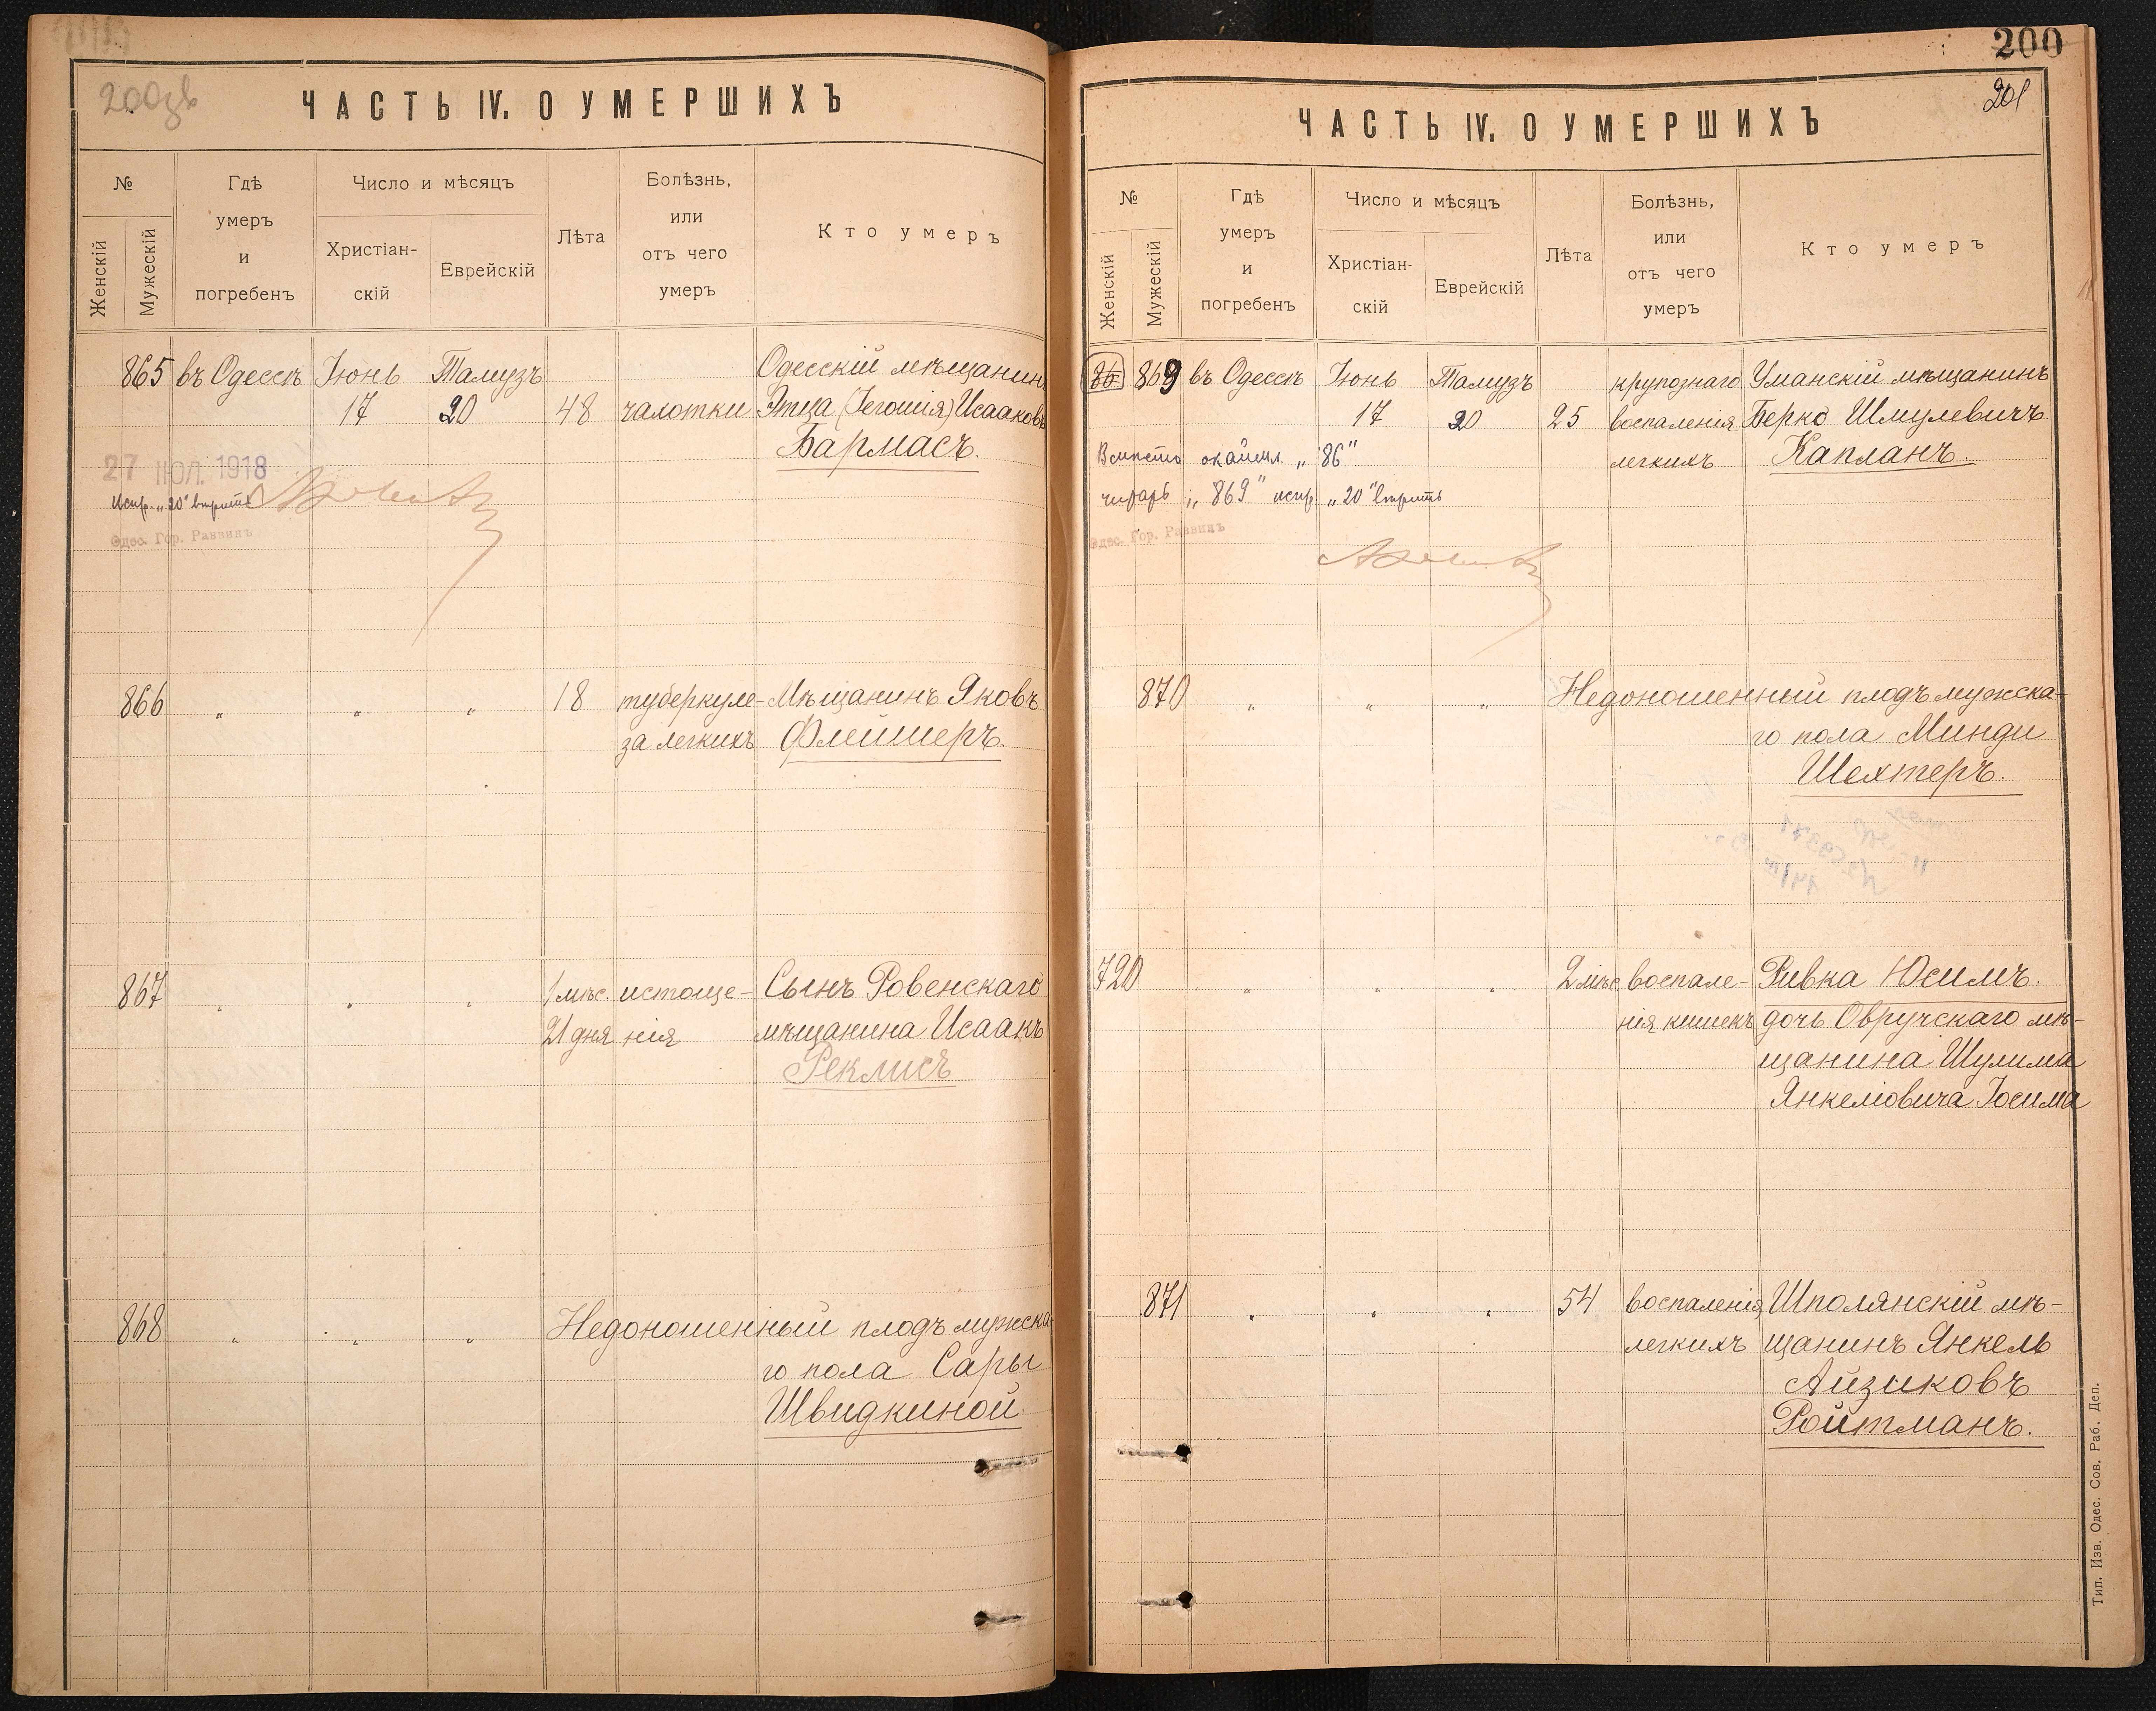 200зв
ЧАСТЬ IV. О УМЕРШИХЪ
№
Женскій
Мужескій
Гдѣ
умеръ
и
погребенъ
Число и мѣсяцъ
Христіан-
скій
Еврейскій
Лѣта
Болѣзнь,
или
отъ чего
умеръ
Кто умеръ
865 въ Одессѣ Іюнь Тамузъ Одесскій мѣщанинъ
17 20 48 чахотки Этца (Іегошія) Исааковъ
Бармасъ.
27 ІЮЛ. 1918
Испр. „20" вѣрить
Одес. Гор. Раввинъ
866 „ „ „ 18 туберкуле- Мѣщанинъ Яковъ
за легкихъ Флейшеръ.
867 „ „ „ 1 мѣс. истоще- Сынъ Ровенскаго
21 дня нія мѣщанина Исаакъ
Реклисъ
868 „ „ „ Недоношенный плодъ мужска-
го пола Сары
Швидкиной.
200
201
ЧАСТЬ IV. О УМЕРШИХЪ
№
Женскій
Мужескій
Гдѣ
умеръ
и
погребенъ
Число и мѣсяцъ
Христіан-
скій
Еврейскій
Лѣта
Болѣзнь,
или
отъ чего
умеръ
Кто умеръ
86 869 въ Одессѣ Іюнь Тамузъ крупознаго Уманскій мѣщанинъ
17 20 25 воспаленія Берко Шмулевичъ
легкихъ Капланъ.
Вмѣсто окаймл. „86"
читать „869" испр. „20" вѣрить
Одес. Гор. Раввинъ
870 „ „ „ Недоношенный плодъ мужска-
го пола Минди
Шехтеръ.
720 „ „ „ 2 мѣс. воспале- Ривка Юсимъ.
нія кишекъ дочь Овручскаго мѣ-
щанина Шулима
Янкелiовича Іосима
871 „ „ „ 54 воспаленія Шполянскій мѣ-
легкихъ щанинъ Янкель
Айзиковъ
Ройтманъ.
Тип. Изв. Одес. Сов. Раб. Деп.